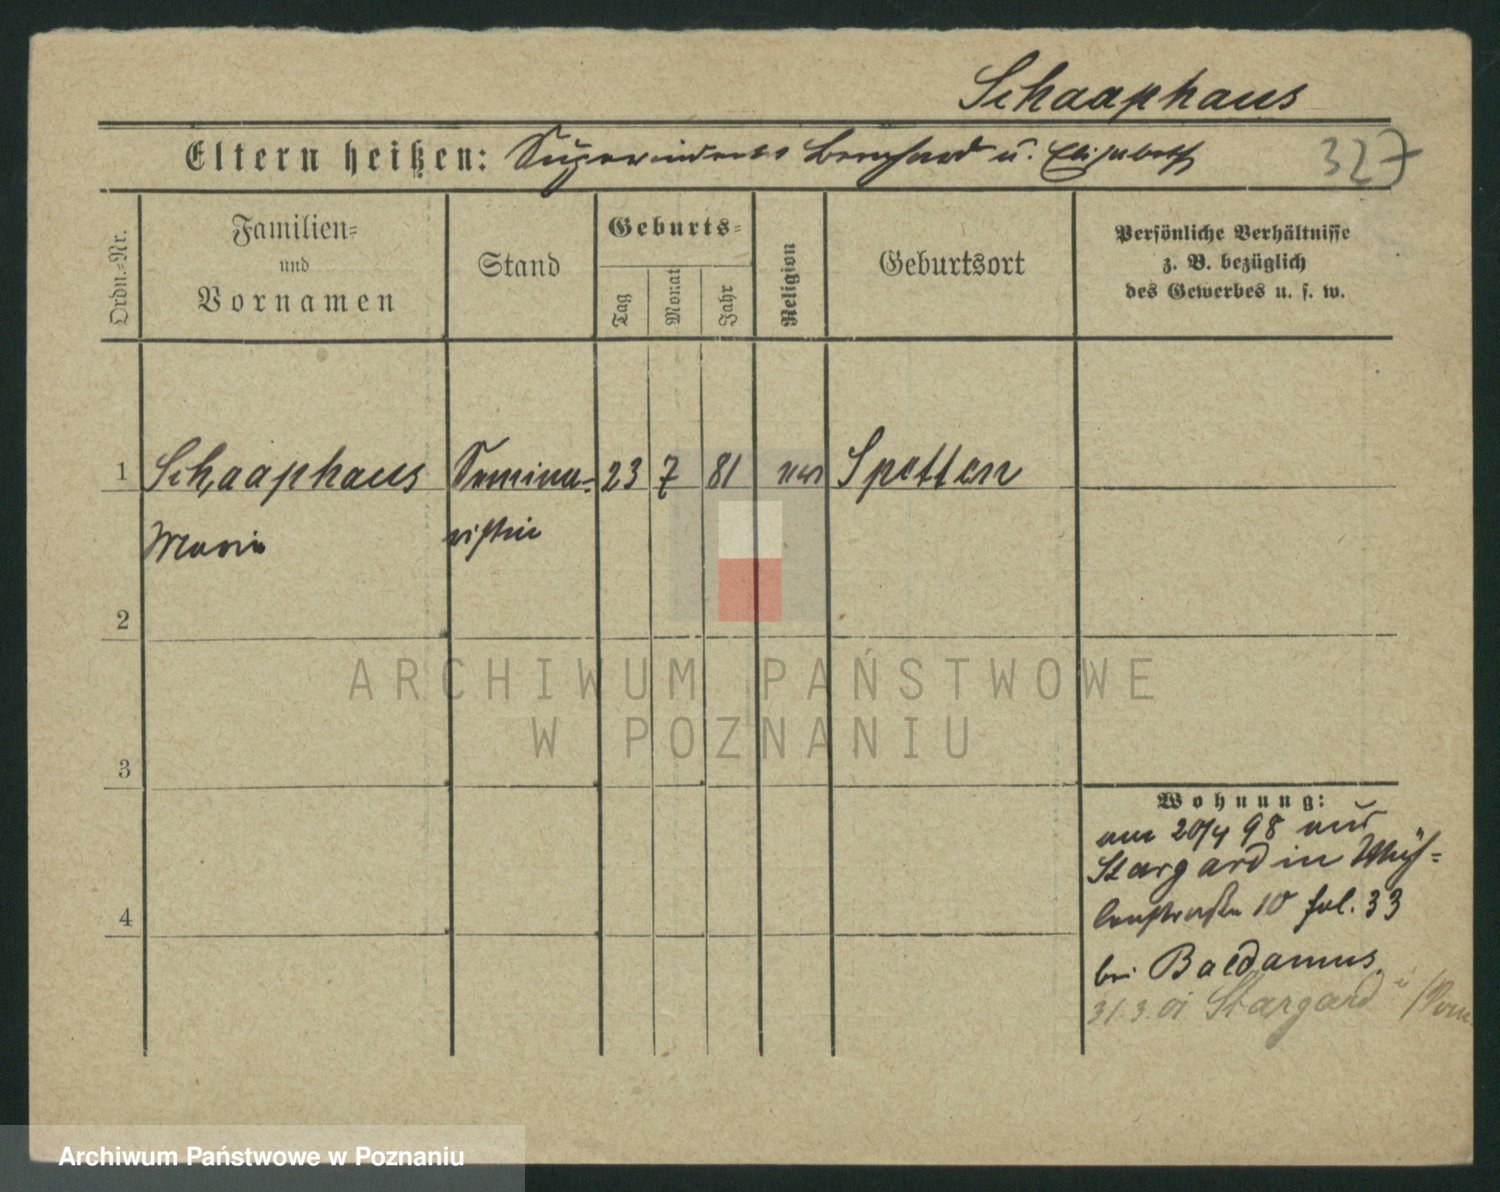 Schaaphaus
Eltern heißen: Superindents Bernhard u. Elisabeth 327
Ordn.=Nr.
Familien=
und
Vornamen
Stand
Geburts=
Tag
Monat
Jahr
Religion
Geburtsort
Persönliche Verhältnisse
z. B. bezüglich
des Gewerbes u. s. w.
1 Schaaphaus Semina- 23 7 81 Spetten
Marie ristin
2
ARCHIWUM PAŃSTWOWE
W POZNANIU
3
Wohnung:
am 20/4 98 aus
Stargard in Müh-
4
lenstraße 10 fol. 33
bei Baedamus.
31.3.01 Stargard i/Pom.
Archiwum Państwowe w Poznaniu